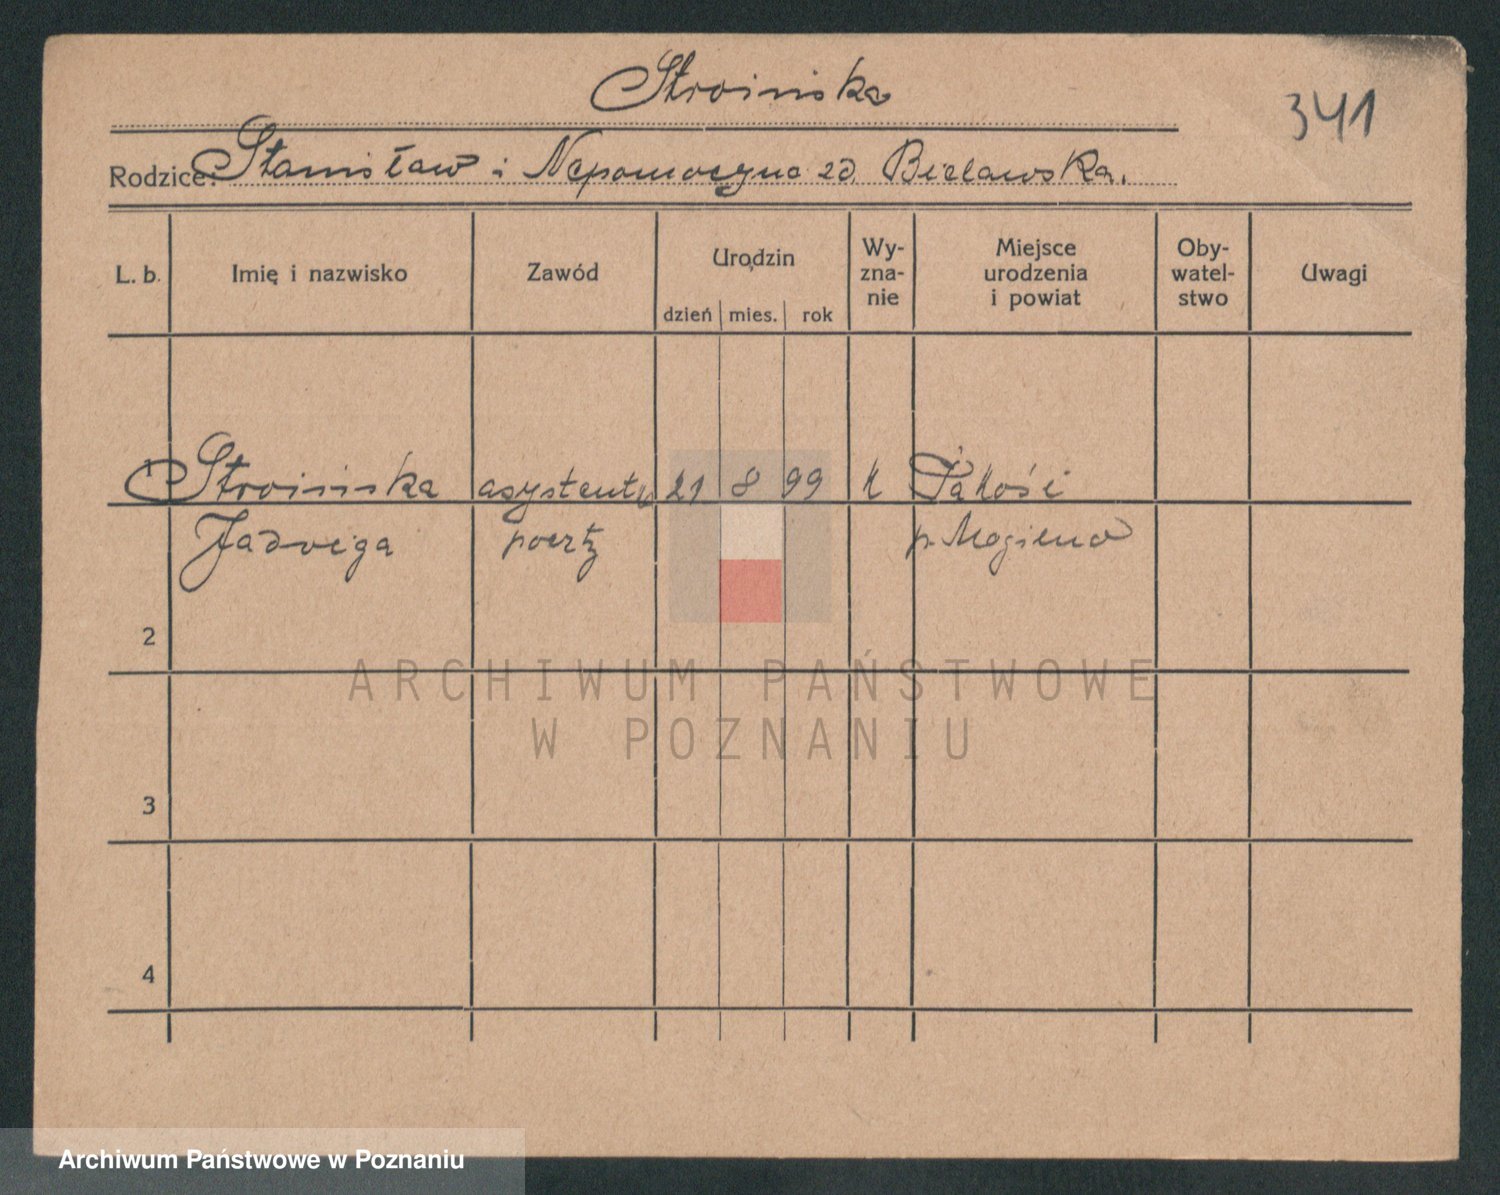 Stroińska
341
Rodzice: Stanisław i Nepomocyna zd Bielawska.
L. b. Imię i nazwisko Zawód Urodzin dzień mies. rok Wy-zna-nie Miejsce urodzenia i powiat Oby-watel-stwo Uwagi
1 Stroińska asystentk 21 8 99 k Pakość
Jadwiga poczt p. Mogilno
2
3
4
ARCHIWUM PAŃSTWOWE
W POZNANIU
Archiwum Państwowe w Poznaniu